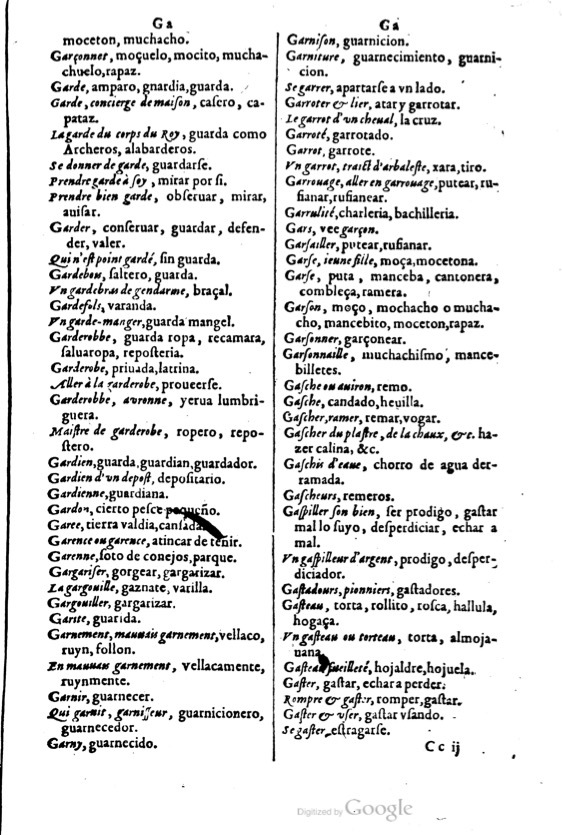 Ga
moceton, muchacho.
Garçonnet, moçuelo, mocito, mucha-
chuelo, rapaz.
Garde, amparo, gnardia, guarda.
Garde, concierge de maiſon, caſero, ca-
pataz.
La garde du corps du Roy, guarda como
Archeros, alabarderos.
Se donner de garde, guardarſe.
Prendre garde à ſoy, mirar por ſi.
Prendre bien garde, obſeruar, mirar,
auiſar.
Garder, conſeruar, guardar, defen-
der, valer.
Qui n'eſt point gardé, ſin guarda.
Gardebou, ſaltero, guarda.
Vn gardebras de gendarme, braçal.
Gardefols, varanda.
Vn garde-manger, guarda mangel.
Garderobbe, guarda ropa, recamara,
ſaluaropa, repoſteria.
Garderobe, priuada, latrina.
Aller à la garderobe, proueerſe.
Garderobbe, auronne, yerua lumbri-
guera.
Maiſtre de garderobe, ropero, repo-
ſtero.
Gardien, guarda, guardian, guardador.
Gardien d'vn depoſt, depoſitario.
Gardienne, guardiana.
Gardon, cierto peſce pequeño.
Garee, tierra valdia, canſada
Garence ou garence, atincar de teñir.
Garenne, ſoto de conejos, parque.
Gargariſer, gorgear, gargarizar.
La gargouille, gaznate, varilla.
Gargouiller, gargarizar.
Garite, guarida.
Garnement, mauuais garnement, vellaco,
ruyn, follon.
En mauuais garnement, vellacamente,
ruynmente.
Garnir, guarnecer.
Qui garnit, garniſſeur, guarnicionero,
guarnecedor.
Garny, guarnecido.
Ga
Garniſon, guarnicion.
Garniture, guarnecimiento, guarni-
cion.
Se garrer, apartarſe a vn lado.
Garroter & lier, atar y garrotar.
Le garrot d'vn cheual, la cruz.
Garroté, garrotado.
Garrot, garrote.
Vn garrot, traict d'arbaleſte, xara, tiro.
Garrouage, aller en garrouage, putear, ru-
fianar, rufianear.
Garrulité, charleria, bachilleria.
Gars, vee garçon.
Garſailler, putear, rufianar.
Garſe, ieune fille, moça, mocetona.
Garſe, puta, manceba, cantonera,
combleça, ramera.
Garſon, moço, mochacho o mucha-
cho, mancebito, moceton, rapaz.
Garſonner, garçonear.
Garſonnaille, muchachiſmo, mance-
billetes.
Gaſche ou auiron, remo.
Gaſche, candado, heuilla.
Gaſcher, ramer, remar, vogar.
Gaſcher du plaſtre, de la chaux, &c. ha-
zer calina, &c.
Gaſchis d'eaue, chorro de agua der-
ramada.
Gaſcheurs, remeros.
Gaſpiller ſon bien, ſer prodigo, gaſtar
mal lo ſuyo, deſperdiciar, echar a
mal.
Vn gaſpilleur d'argent, prodigo, deſper-
diciador.
Gaſtadours, pionniers, gaſtadores.
Gaſteau, torta, rollito, roſca, hallula,
hogaça.
Vn gaſteau ou torteau, torta, almoja-
uana.
Gaſteau fueilleté, hojaldre, hojuela.
Gaſter, gaſtar, echar a perder.
Rompre & gaſter, romper, gaſtar.
Gaſter & vſer, gaſtar vſando.
Se gaſter, eſtragarſe.
Cc ij
Digitized by Google